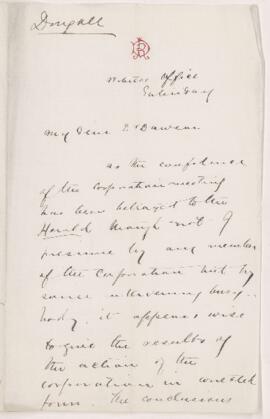 Dougall
Witness Office
Saturday
My Dear Dr Dawson
as the confidence
of the corporation meeting
has been betrayed to the
Herald though not I
presume by any member
of the corporation but by
some intervening busy-
body, it appears wise
to give the results of
the action of the
corporation in
form. The conclusions